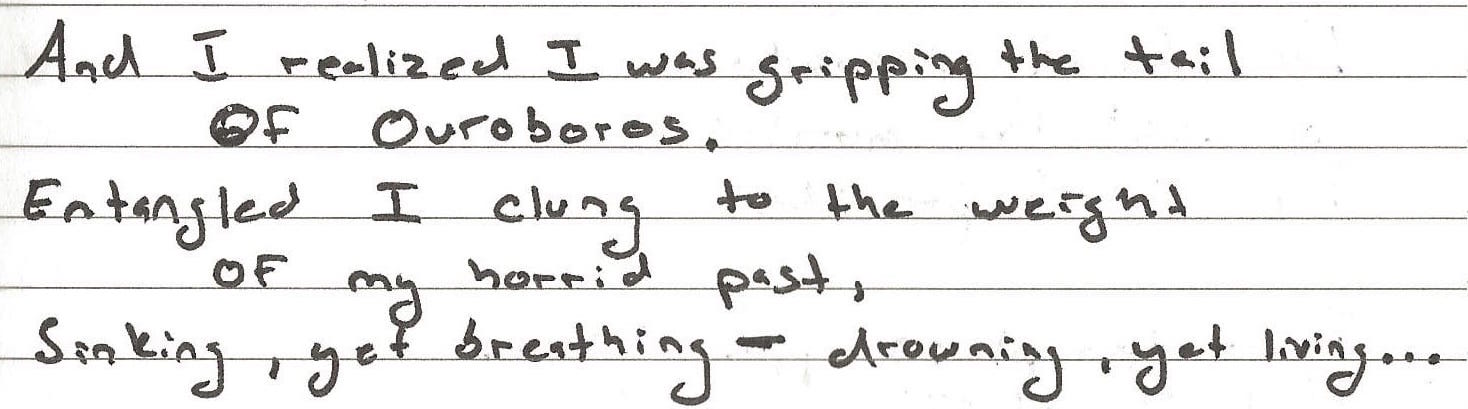 And I realized I was gripping the tail
Of Ouroboros.
Entangled I clung to the weight
Of my horrid past,
Sinking, yet breathing - drowning, yet living...